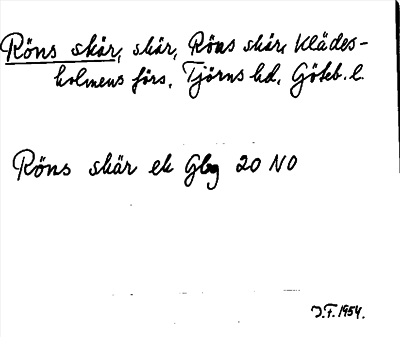 Röns skär, skär, Röns skär, Klädes-
holmens förs, Tjörns hd, Göteb. l.
Röns skär ek Gbg 20 NO
J.F. 1954.